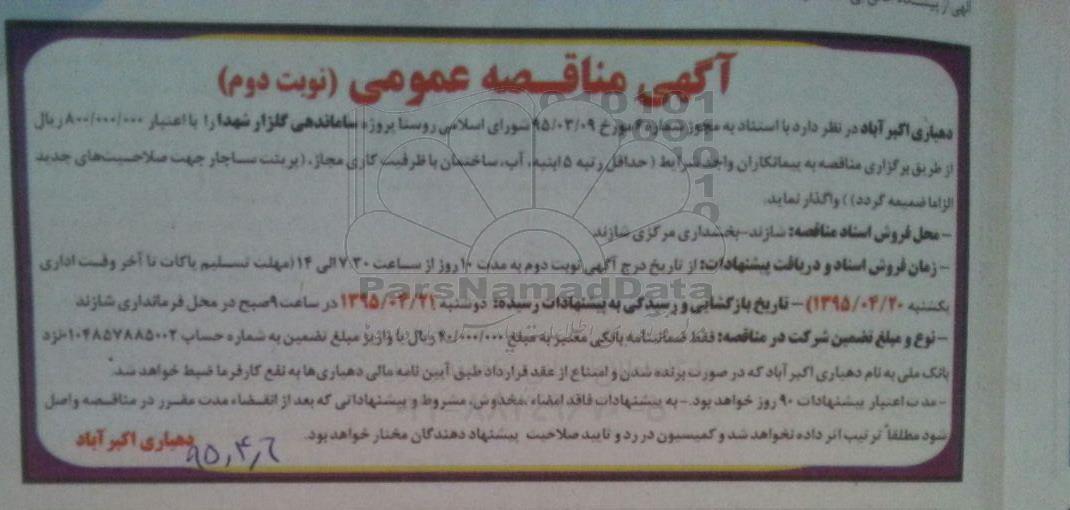 آگهی مناقصه عمومی (نوبت دوم)
دهیاری اکبر آباد در نظر دارد با استناد به مجوز شماره مورخ ۹۵/۰۳/۰۹ شورای اسلامی روستا پروژه ساماندهی گلزار شهدا را با اعتبار ۸۰۰/۰۰۰/۰۰۰ ریال
از طریق برگزاری مناقصه به پیمانکاران واجد شرایط (حداقل رتبه ۵ ابنیه، آب، ساختمان با ظرفیت کاری مجاز، (پرینت ساجار جهت صلاحیت‌های جدید
الزاما ضمیمه گردد)) واگذار نماید.
- محل فروش اسناد مناقصه: شازند-بخشداری مرکزی شازند
- زمان فروش اسناد و دریافت پیشنهادات: از تاریخ درج آگهی نوبت دوم به مدت ۱۰ روز از ساعت ۷:۳۰ الی ۱۴ (مهلت تسلیم پاکات تا آخر وقت اداری
یکشنبه ۱۳۹۵/۰۴/۲۰) - تاریخ بازگشایی و رسیدگی به پیشنهادات رسیده: دوشنبه ۱۳۹۵/۰۴/۲۱ در ساعت ۹ صبح در محل فرمانداری شازند
- نوع و مبلغ تضمین شرکت در مناقصه: فقط ضمانتنامه بانکی معتبر به مبلغ ۴۰/۰۰۰/۰۰۰ ریال یا واریز مبلغ تضمین به شماره حساب ۰۱۰۴۸۵۷۸۸۵۰۰۲ نزد
بانک ملی به نام دهیاری اکبر آباد که در صورت برنده شدن و امتناع از عقد قرارداد طبق آیین نامه مالی دهیاری‌ها به نفع کارفرما ضبط خواهد شد.
- مدت اعتبار پیشنهادات ۹۰ روز خواهد بود. - به پیشنهادات فاقد امضاء، مخدوش، مشروط و پیشنهاداتی که بعد از انقضاء مدت مقرر در مناقصه واصل
شود مطلقاً ترتیب اثر داده نخواهد شد و کمیسیون در رد و تایید صلاحیت پیشنهاد دهندگان مختار خواهد بود.
دهیاری اکبر آباد
۹۵,۴,۶
ParsNamadData